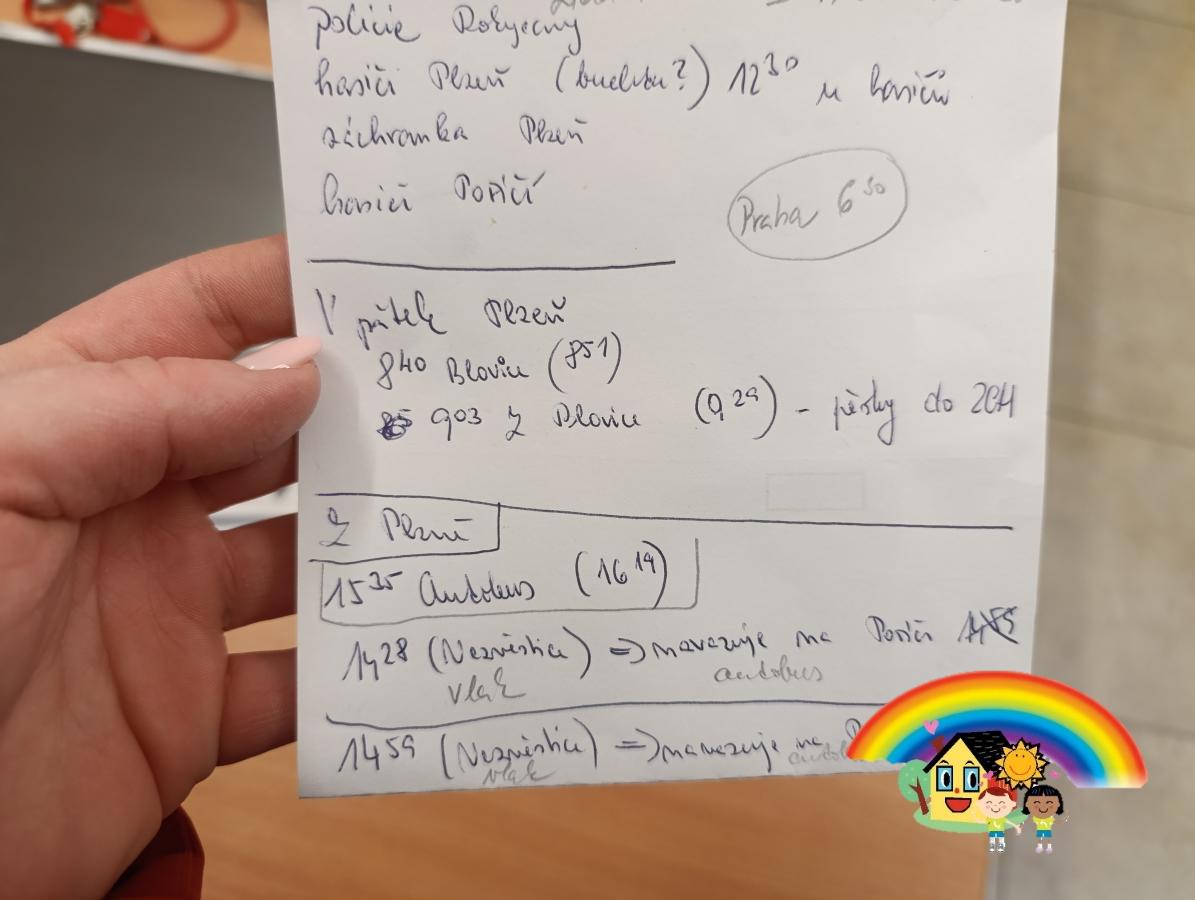 policie Rokycany
hasiči Plzeň (budova?) 12³⁰ u hasičů
záchranka Plzeň
hasiči Poříčí
Praha 6³⁰
V pátek Plzeň
8⁴⁰ Blovice (8⁵¹)
9⁰³ Z Blovic (9,²⁹) - pěšky do ZOO
Z Plzně
15³⁵ Autobus (16¹⁹)
14²⁸ (Nezvěstice) => navazuje na Poříčí
vlak autobus
14⁵⁹ (Nezvěstice) => navazuje na
vlak